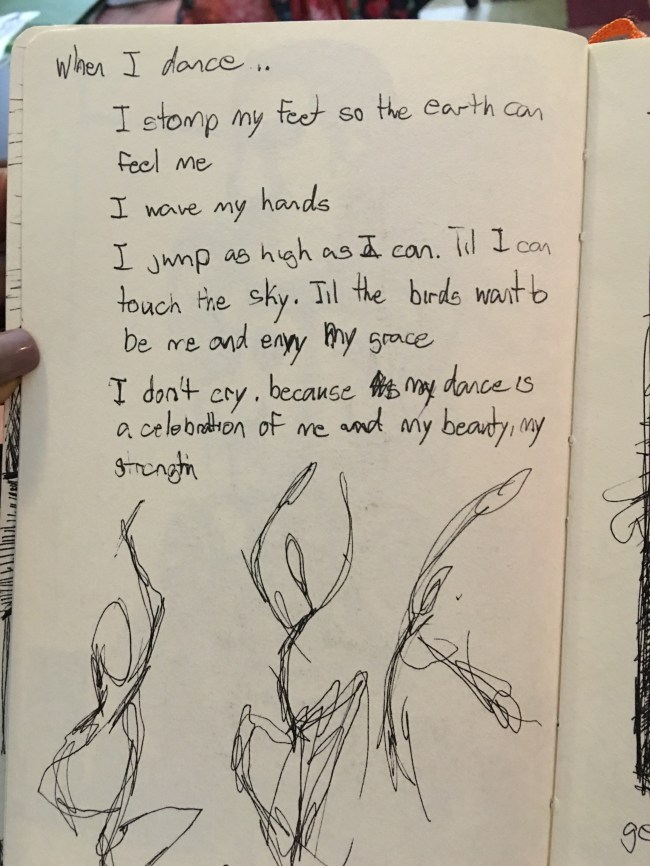 When I dance..
I stomp my feet so the earth can
feel me
I wave my hands
I jump as high as I can. Til I can
touch the sky. Til the birds want to
be me and envy my grace
I don't cry. because my dance is
a celebration of me and my beauty, my
strength
ge